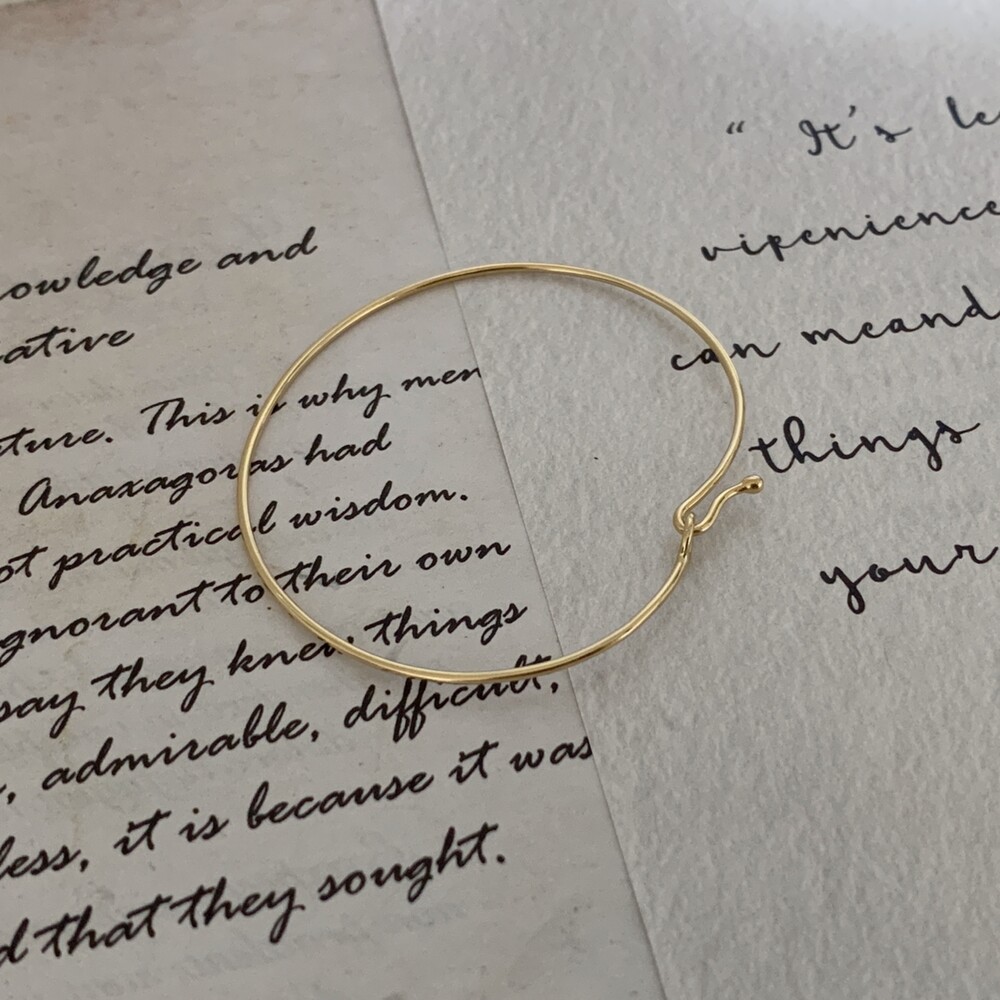 owledge and
ative
ture. This is why men
Anaxagoras had
ot practical wisdom.
gnorant to their own
say they knew things
, admirable, difficult,
less, it is because it was
d that they sought.
“ It's le
vipenience
can meand
things
your